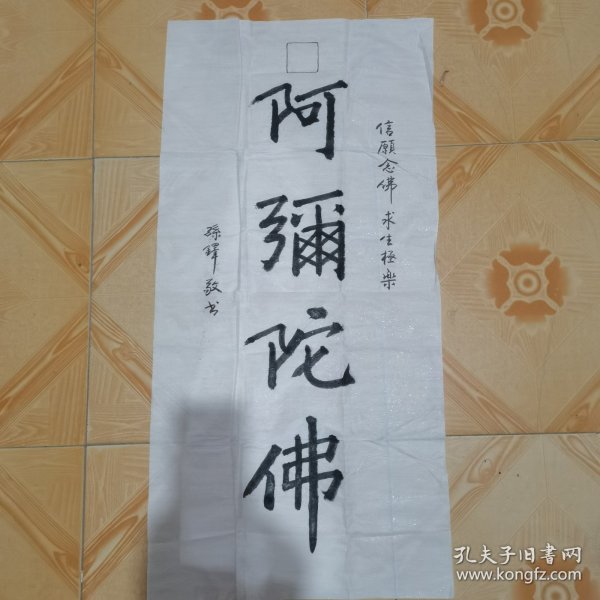 信願念佛 求生極樂
阿彌陀佛
孫鐸敬书
孔夫子旧书网
www.kongfz.com